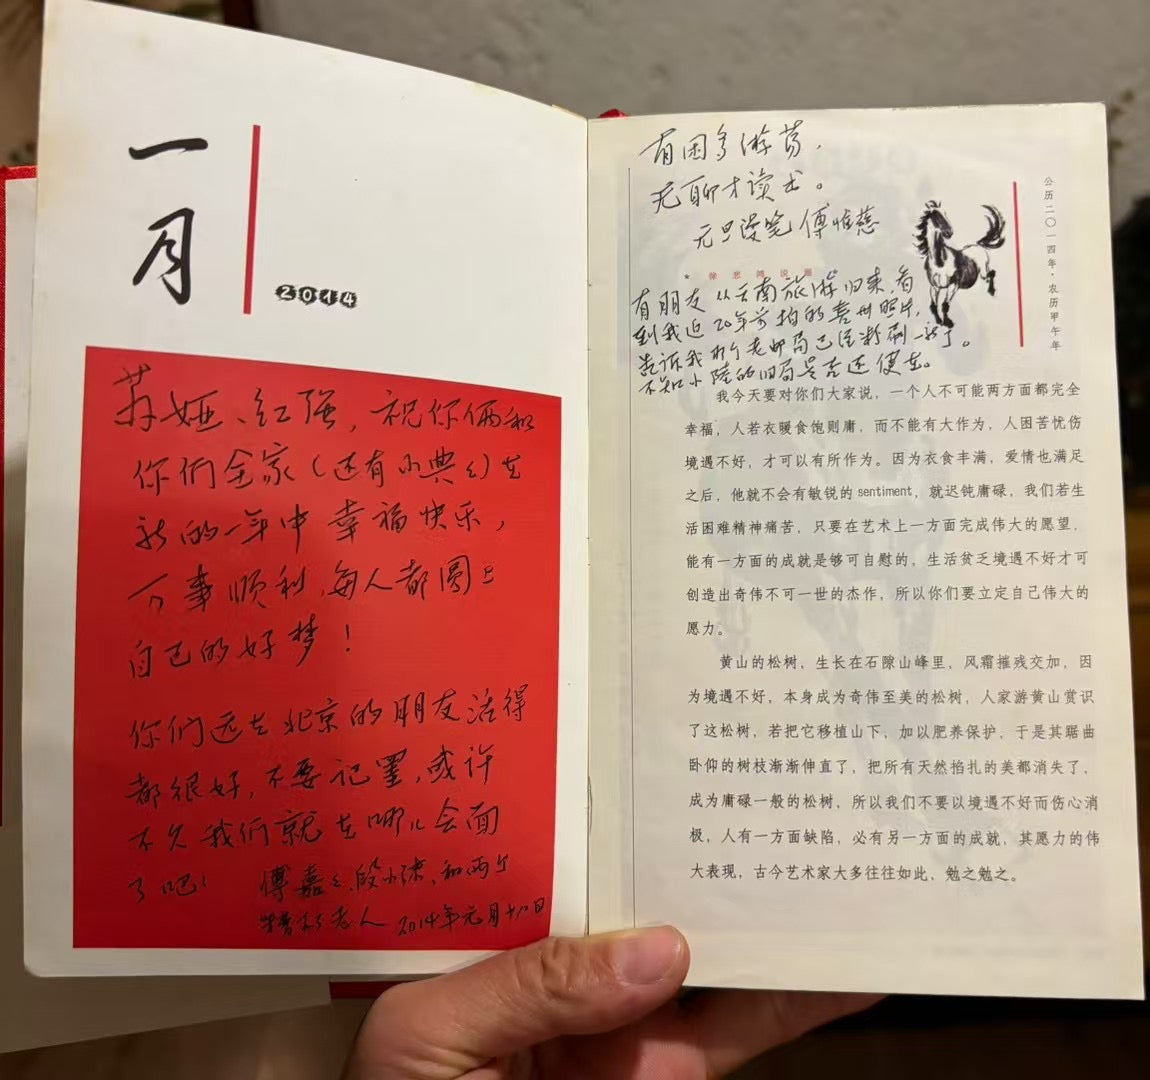 一月
2014
苏娅、红强，祝你俩和
你们全家（还有小典典）在
新的一年中幸福快乐，
万事顺利，每人都圆上
自己的好梦！
你们远在北京的朋友活得
都很好，不要记罣，或许
不久我们就在哪儿会面
了吧！ 傅嘉嘉、段小沫，和两个
糟朽老人 2014年元月十八日
有困多游荡，
无聊才读书。
元旦漫笔 傅惟慈
公历二〇一四年·农历甲午年
* 徐悲鸿说画
有朋友从云南旅游归来，看
到我近20年前拍的喜州照片，
告诉我那个老邮局已经粉刷一新了。
不知小陆的旧局是否还健在。
我今天要对你们大家说，一个人不可能两方面都完全
幸福，人若衣暖食饱则庸，而不能有大作为，人困苦忧伤
境遇不好，才可以有所作为。因为衣食丰满，爱情也满足
之后，他就不会有敏锐的sentiment，就迟钝庸碌，我们若生
活困难精神痛苦，只要在艺术上一方面完成伟大的愿望，
能有一方面的成就是够可自慰的，生活贫乏境遇不好才可
创造出奇伟不可一世的杰作，所以你们要立定自己伟大的
愿力。
黄山的松树，生长在石隙山峰里，风霜摧残交加，因
为境遇不好，本身成为奇伟至美的松树，人家游黄山赏识
了这松树，若把它移植山下，加以肥养保护，于是其踞曲
卧仰的树枝渐渐伸直了，把所有天然掐扎的美都消失了，
成为庸碌一般的松树，所以我们不要以境遇不好而伤心消
极，人有一方面缺陷，必有另一方面的成就，其愿力的伟
大表现，古今艺术家大多往往如此，勉之勉之。